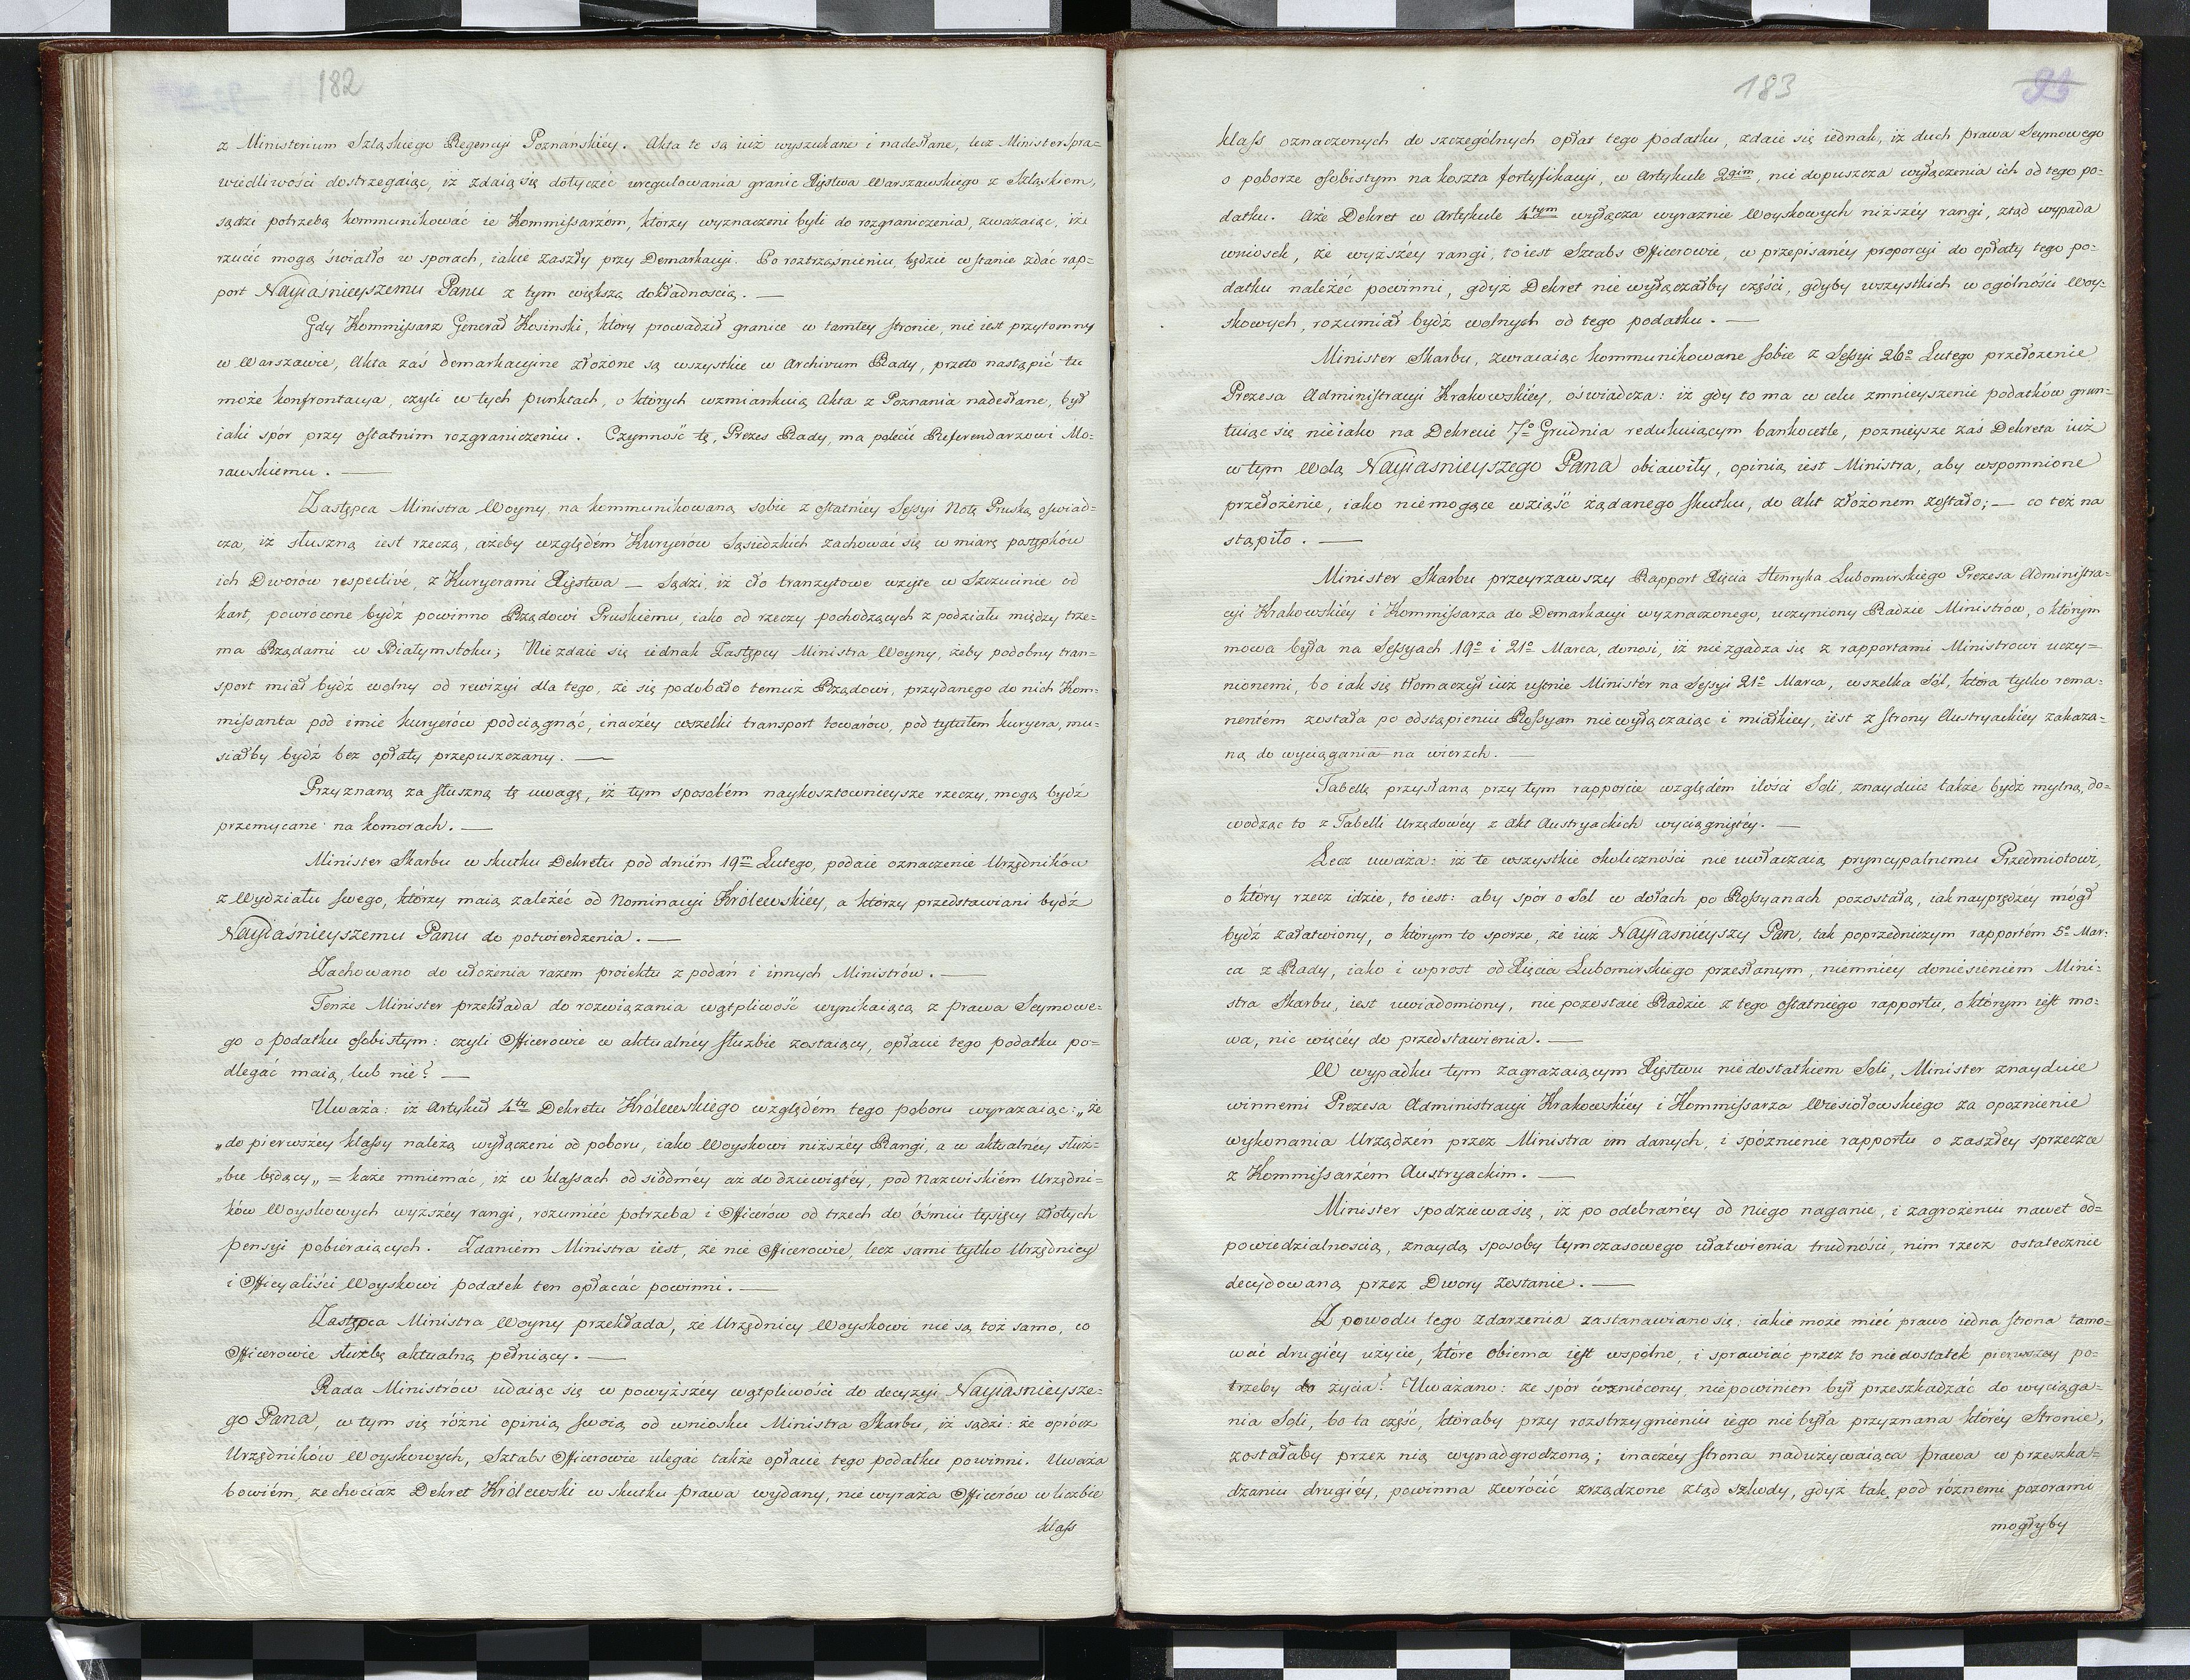 182
z Ministerium Szląskiego Regencyi Poznańskiéy. Akta te są iuż wyszukane i nadesłane, lecz Minister Spra=
wiedliwości dostrzegaiąc, iż zdaią się dotyczéc uregulowania granic Xięstwa Warszawskiego z Szląskiem,
sądzi potrzebą kommunikować ie Kommissarzóm, którzy wyznaczeni byli do rozgraniczenia, zważaiąc, iż
rzucić mogą światło w sporach, iakie zaszły przy Demarkacyi. Po roztrząśnieniu, będzie w stanie zdać rap=
port Nayiaśnieyszemu Panu z tym większą dokładnością. —
Gdy Kommissarz Generał Kosinski, który prowadził granice w tamtey stronie, nie iest przytomny
w Warszawie, Akta zaś demarkacyine złożone są wszystkie w Archivum Rady, przeto nastąpić tu
może konfrontacya, czyli w tych punktach, o których wzmiankuią Akta z Poznania nadesłane, był
iaki spór przy ostatnim rozgraniczeniu. Czynność tę, Prezes Rady, ma polecić Referendarzowi Mo=
rawskiemu. —
Zastępca Ministra Woyny, na kommunikowaną sobie z ostatniéy Sessyi Notę Pruską oświad=
cza, iż słuszną iest rzeczą, ażeby względém Kuryerów Sąsiedzkich zachować się w miarę postępków
ich Dworów respectivé, z Kuryerami Xięstwa — Sądzi, iż cło tranzytowe wzięte w Szczucinie od
kart, powrócone bydź powinno Rządowi Pruskiemu, iako od rzeczy pochodzących z podziału między trze=
ma Rządami w Białymstoku; Nie zdaie się iednak Zastępcy Ministra Woyny, żeby podobny tran=
sport miał bydź wolny od rewizyi dla tego, że się podobało temuż Rządowi, przydanego do nich Kom=
missanta pod imie kuryerów podciągnąć, inaczéy wszelki transport towarów, pod tytułem kuryera, mu=
siałby bydź bez opłaty przepuszczany. —
Przyznaną za słuszną tę uwagę, iż tym sposobém naykosztownieysze rzeczy, mogą bydź
przemycane na komorach. —
Minister Skarbu w skutku Dekretu pod dniém 19m Lutego, podaie oznaczenie Urzędników
z Wydziału swego, którzy maią zależéć od Nominacyi Królewskiéy, a którzy przedstawiani bydź
Nayiaśnieyszemu Panu do potwierdzenia. —
Zachowano do ułożenia razem proiektu z podań i innych Ministrów. —
Tenże Minister przekłada do rozwiązania wątpliwość wynikaiącą z prawa Seymowe=
go o podatku osobistym: czyli Officerowie w aktualnéy służbie zostaiący, opłacie tego podatku po=
dlegać maią, lub nie? —
Uważa: iż Artykuł 4ty Dekretu Królewskiego względém tego poboru wyrażaiąc: „że
„do pierwszéy klassy należą wyłączeni od poboru, iako Woyskowi niższéy Rangi, a w aktualnéy służ=
„bie będący„ = każe mniemać, iż w klassach od siódméy aż do dziewiątéy, pod Nazwiskiém Urzędni=
ków Woyskowych wyższéy rangi, rozumieć potrzeba i Officerów od trzech do óśmiu tysięcy złotych
pensyi pobieraiących. Zdaniem Ministra iest, że nie Officerowie, lecz sami tylko Urzędnicy
i Officyaliści Woyskowi podatek ten opłacać powinni. —
Zastępca Ministra Woyny przekłada, że Urzędnicy Woyskowi nie są toż samo, co
Officerowie służbę aktualną pełniący. —
Rada Ministrów udaiąc się w powyższéy wątpliwości do decyzyi Nayiaśnieysze=
go Pana, w tym się różni opinią swoią od wniosku Ministra Skarbu, iż sądzi: że oprócz
Urzędników Woyskowych, Sztabs Officerowie ulegać także opłacie tego podatku powinni. Uważa
bowiém, że chociaż Dekret Królewski w skutku prawa wydany, nie wyraża Officerów w liczbie
klass
183
klass oznaczonych do szczególnych opłat tego podatku, zdaie się iednak, iż duch prawa Seymowego
o poborze osobistym na koszta fortyfikacyi, w Artykule 2gim, nie dopuszcza wyłączenia ich od tego po=
datku. Aże Dekret w Artykule 4tym wyłącza wyraznie Woyskowych niższéy rangi, ztąd wypada
wniosek, że wyższéy rangi, to iest Sztabs Officerowie, w przepisanéy proporcyi do opłaty tego po=
datku należéć powinni, gdyż Dekret nie wyłączałby części, gdyby wszystkich w ogólności Woy=
skowych, rozumiał bydź wolnych od tego podatku. —
Minister Skarbu, zwracaiąc kommunikowane sobie z Sessyi 26o Lutego przełożenie
Prezesa Administracyi Krakowskiéy, oświadcza: iż gdy to ma w celu zmnieyszenie podatków grun=
tuiąc się nieiako na Dekrecie 7o Grudnia redukuiącym bankocetle, poznieysze zaś Dekreta iuż
w tym Wolą Nayiaśnieyszego Pana obiawiły, opinią iest Ministra, aby wspomnione
przełożenie, iako niemogące wziąść żądanego skutku, do Akt złożonem zostało; — co też na
stąpiło. —
Minister Skarbu przeyrzawszy Rapport Xięcia Henryka Lubomirskiego Prezesa Administra=
cyi Krakowskiéy i Kommissarza do Demarkacyi wyznaczonego, uczyniony Radzie Ministrów, o którym
mowa była na Sessyach 19o i 21o Marca, donosi, iż nie zgadza się z rapportami Ministrowi uczy=
nionemi, bo iak się tłomaczył iuż ustnie Minister na Sessyi 21o Marca, wszelka Sól, która tylko rema=
nentém została po odstąpieniu Rossyan nie wyłączaiąc i miałkiey, iest z strony Austryackiéy zakaza=
ną do wyciągania na wierzch. —
Tabellę przysłaną przy tym rapporcie względém ilości Soli, znayduie także bydź mylną, do=
wodząc to z Tabelli Urzędowéy z Akt Austryackich wyciągniętéy. —
Lecz uważa: iż te wszystkie okoliczności nie uwłaczaią pryncypalnemu Przedmiotowi,
o który rzecz idzie, to iest: aby spór o Sól w dołach po Rossyanach pozostałą, iak nayprędzéy mógł
bydź załatwiony, o którym to sporze, że iuż Nayiaśnieyszy Pan, tak poprzedniczym rapportém 5o Mar=
ca z Rady, iako i wprost od Xięcia Lubomirskiego przesłanym, niemniéy doniesieniem Mini=
stra Skarbu, iest uwiadomiony, nie pozostaie Radzie z tego ostatniego rapportu, o którym iest mo=
wa, nic więcéy do przedstawienia. —
W wypadku tym zagrażaiącym Xięstwu niedostatkiem Soli, Minister znayduie
winnemi Prezesa Administracyi Krakowskiéy i Kommissarza Wesiołowskiego za opoznienie
wykonania Urządzeń przez Ministra im danych, i spóznienie rapportu o zaszłey sprzeczce
z Kommissarzém Austryackim. —
Minister spodziewa się, iż po odebranéy od niego naganie, i zagrożeniu nawet od=
powiedzialnością, znaydą sposoby tymczasowego ułatwienia trudności, nim rzecz ostatecznie
decydowaną przez Dwory zostanie. —
Z powodu tego zdarzenia zastanawiano się: iakie może mieć prawo iedna strona tamo=
wać drugiéy użycie, które obiema iest wspólne, i sprawiać przez to niedostatek pierwszey po=
trzeby do życia? Uważano: że spór wzniécony, niepowinien był przeszkadzać do wyciąga=
nia Soli, bo ta część, któraby przy rozstrzygnieniu iego nie była przyznana któréy Stronie,
zostałaby przez nią wynadgrodzoną; inaczéy strona nadużywaiąca prawa w przeszka=
dzaniu drugiéy, powinna zwrócić zrządzone ztąd szkody, gdyż tak pod różnemi pozorami
mogłyby